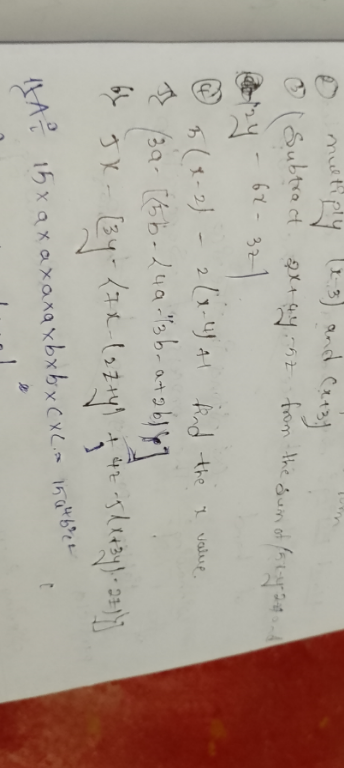 ② multiply (x-3) and (x+3)
③ (Subtract 2x+4y-5z from the sum of
2y - 6x - 3z]
④ 5(x-2) - 2(x-4)+1 find the x value.
5} (3a-[5b-{4a-(3b-a+2b)}]
6} 5x - [3y-{7x-(2z+y)+4z-5(x+3y)-2z}]
1} A = 15×a×a×a×a×b×b×c×c = 15a4b2c2